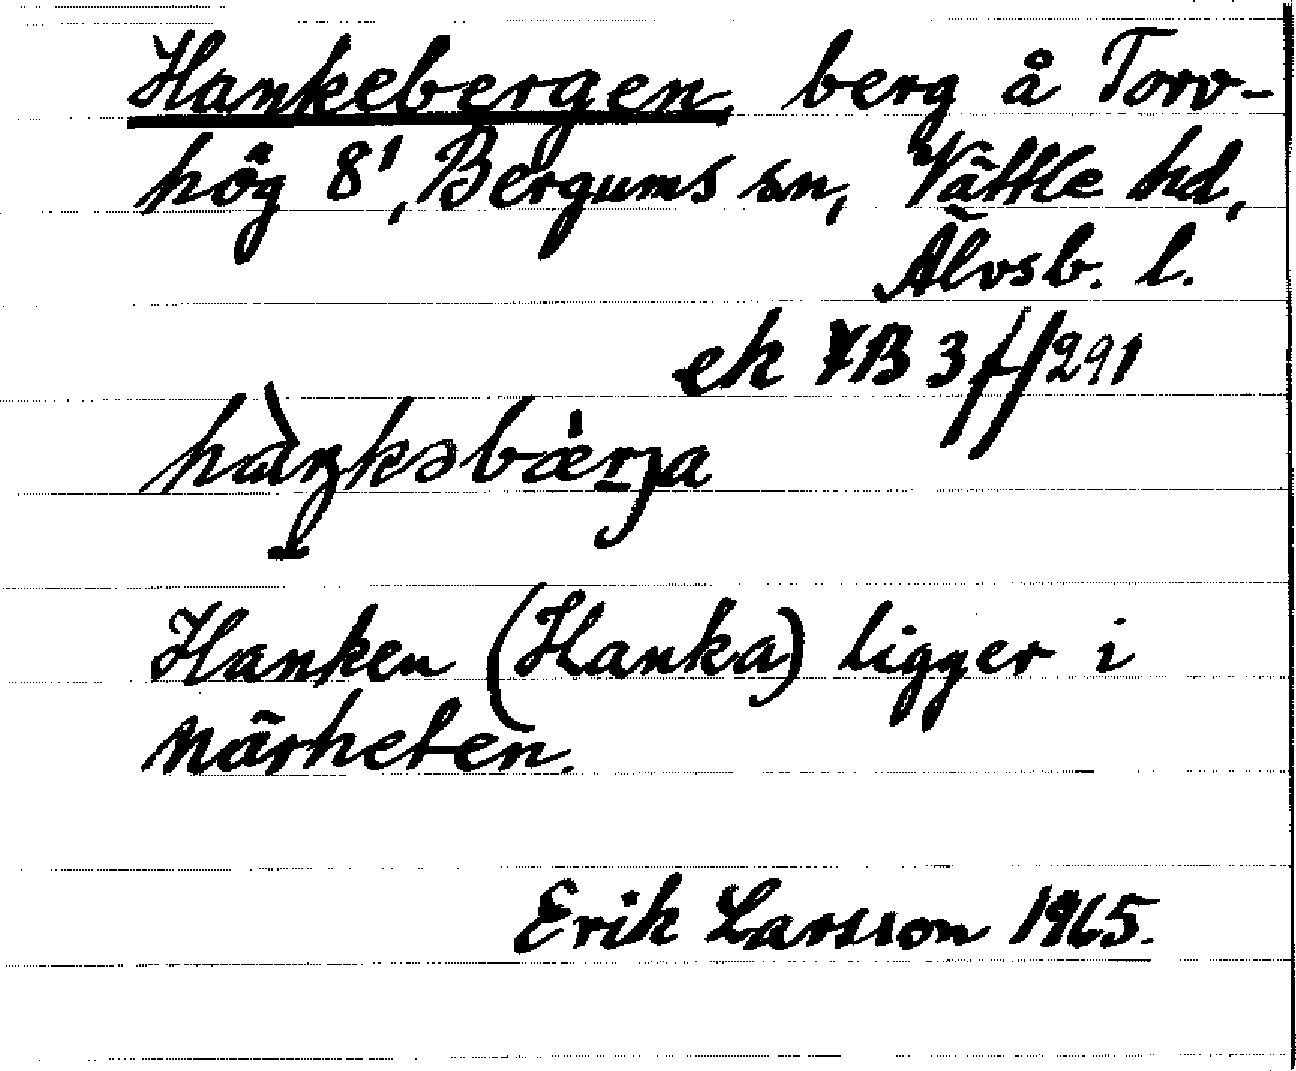 Hankebergen berg å Torv-
hög 8¹, Bergums sn, Vättle hd,
Älvsb. l.
ek 7B 3f/291
hàŋkəbæ̀rja
Hanken (Hanka) ligger i
närheten.
Erik Larsson 1965.